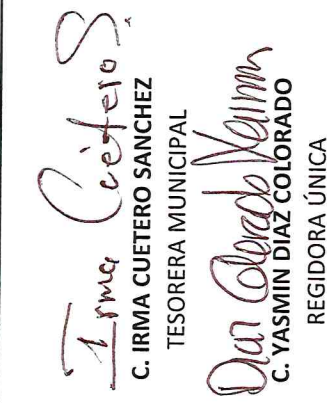 Irma Cuetero S.
C. IRMA CUETERO SANCHEZ
TESORERA MUNICIPAL
Diaz Colorado Yasmin
C. YASMIN DIAZ COLORADO
REGIDORA ÚNICA